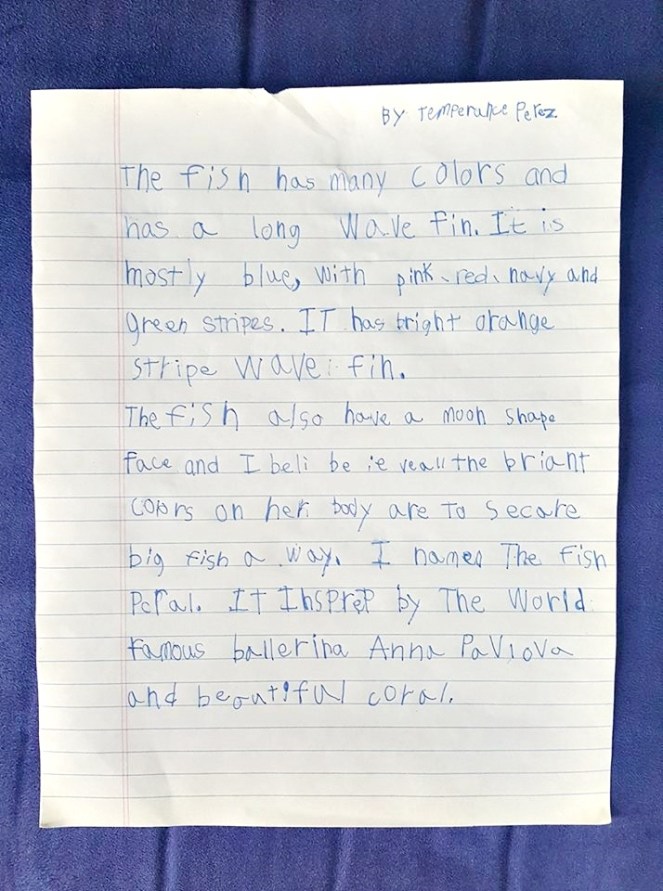 BY Temperance Perez
The fish has many colors and
has a long wave fin. It is
mostly blue, with pink, red, navy and
green stripes. IT has bright orange
stripe wave fin.
The fish also have a moon shape
face and I beli be ie veall the briant
colors on her body are to secare
big fish a way. I names The fish
It InsPreP by The World
Famous ballerina Anna Pavlova
and beautiful coral.